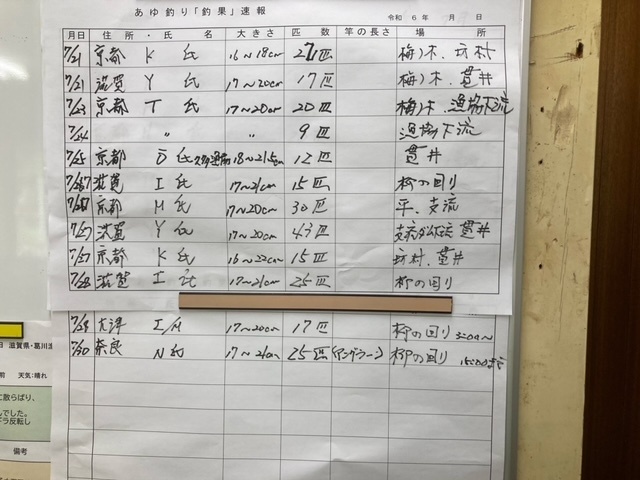 あゆ釣り「釣果」速報
令和 6年 月 日
月日 住所・氏名 大きさ 匹数 竿の長さ 場所
7/21 京都 K 氏 16~18cm 27匹 梅ノ木、坊村
7/21 滋賀 Y 氏 17~20cm 17匹 梅ノ木、貫井
7/23 京都 T 氏 17~20cm 20匹 梅ノ木、漁協下流
7/24 〃 〃 9匹 漁協下流
7/25 京都 D氏 18~21.5cm 12匹 貫井
滋賀 I 氏 17~21cm 15匹 柳の回り
京都 M 氏 17~20cm 30匹 平、支流
7/27 滋賀 Y 氏 17~20cm 43匹 貫井
7/27 京都 K氏 16~22cm 15匹 坊村、貫井
7/28 滋賀 I 氏 17~21cm 25匹 柳の回り
7/29 大津 I/M 17~20cm 17匹 柳の回り
7/30 奈良 N 氏 17~21cm 25匹(アングラー) 柳の回り
日 滋賀県・葛川漁
前 天気:晴れ
に散らばり、
んでした。
ドラ反転し
備考